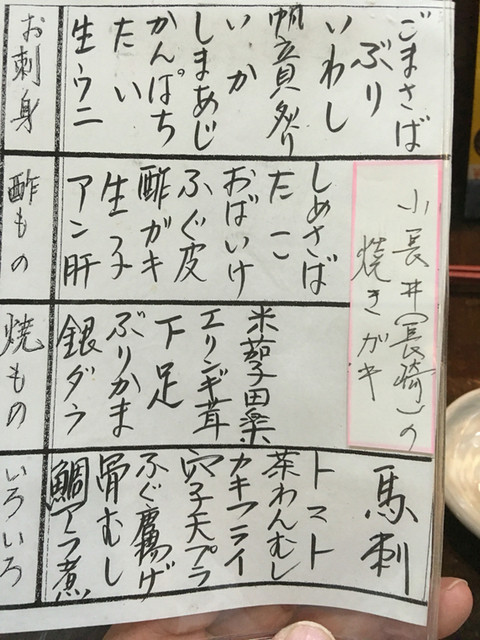 お刺身
ごまさば
ぶり
いわし
帆立貝炙り
いか
しまあじ
かんぱち
たい
生ウニ
酢もの
小長井(長崎)の
焼きガキ
しめさば
たこ
おばいけ
ふぐ皮
酢ガキ
生子
アン肝
焼もの
米茄子田楽
エリンギ茸
下足
ぶりかま
銀ダラ
いろいろ
馬刺
トマト
茶わんむし
カキフライ
穴子天プラ
ふぐ唐揚げ
骨むし
鯛アラ煮